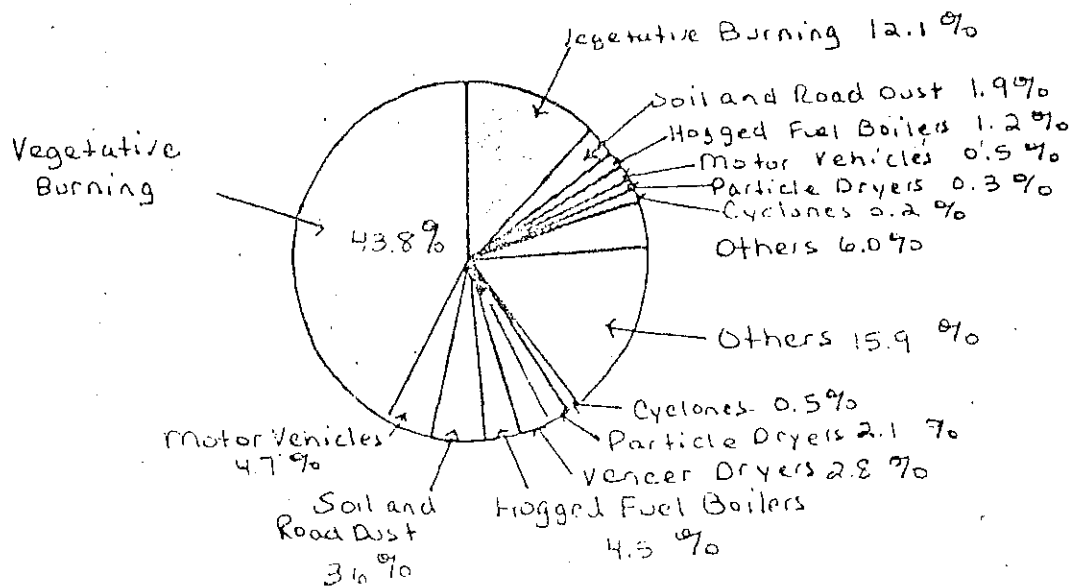 Vegetative Burning 12.1 %
Soil and Road Dust 1.9%
Hogged Fuel Boilers 1.2%
Motor Vehicles 0.5 %
Particle Dryers 0.3 %
Cyclones 0.2 %
Others 6.0%
Vegetative
Burning
43.8%
Others 15.9 %
Cyclones 0.5%
Particle Dryers 2.1 %
Veneer Dryers 2.8 %
Motor Vehicles
4.7 %
Soil and
Road Dust
%
Hogged Fuel Boilers
4.5 %